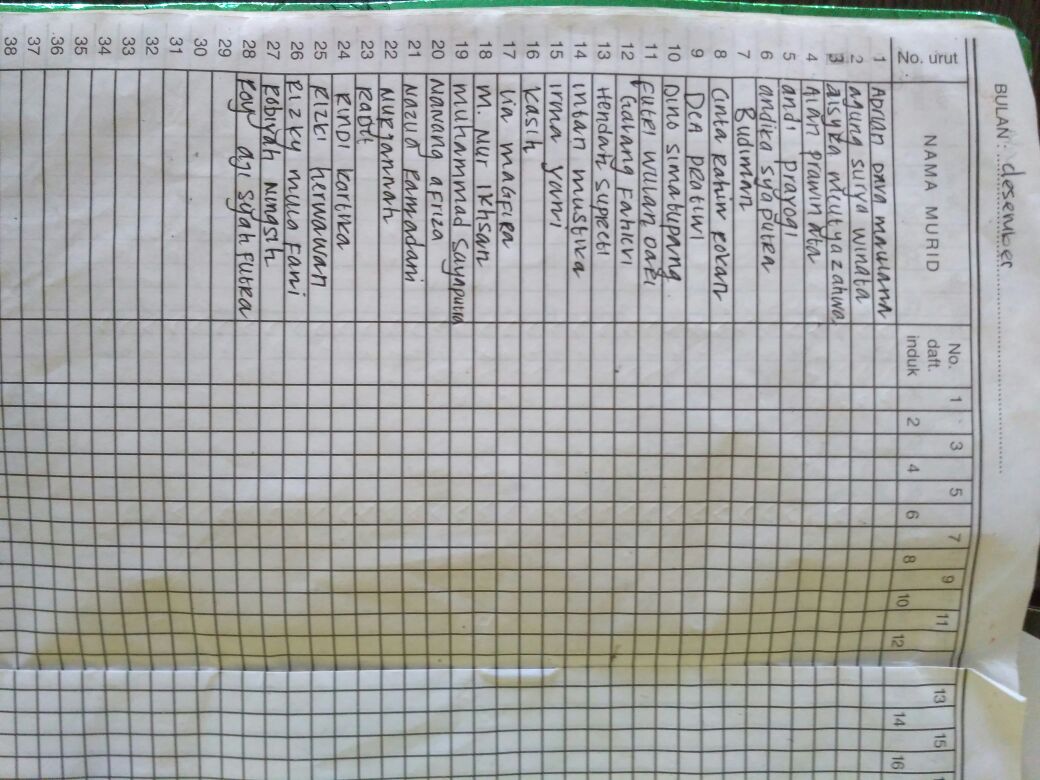 BULAN: desember
No. urut NAMA MURID No. daft. induk 1 2 3 4 5 6 7 8 9 10 11 12 13 14 15 16
1 Adrian Dava maulana
2 agung surya winata
3 aisyra mcutyazahwa
4 Alan prawinata
5 andi prayogi
6 andika syaputra
7 Budiman
8 Cinta rahin rokan
9 Dea pratiwi
10 Dino simatupang
11 Futri wulan dari
12 Galang Fahlevi
13 Hendah supecti
14 intan mustika
15 irma yani
16 Kasih
17 lia magfira
18 M. Nur Ikhsan
19 muhammad Sayaputra
20 Nanang afriza
21 Nazua ramadani
22 Nurjannah
23 Radit
24 Rindi kartika
25 Rizki herwawan
26 Rizky mulia Fani
27 Robiyah Ningsih
28 Roy aji syah Putra
29
30
31
32
33
34
35
36
37
38